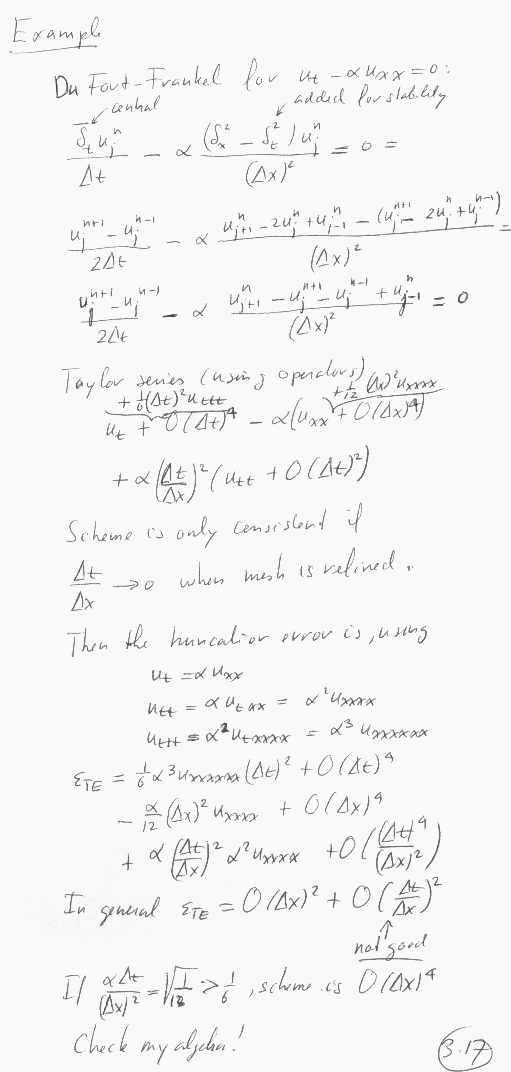 Example
Du Fort-Frankel for u_t - αu_xx = 0 :
central added for stability
δ̄_t u_j^n / Δt - α (δ_x^2 - δ_t^2) u_j^n / (Δx)^2 = 0 =
(u_j^{n+1} - u_j^{n-1}) / 2Δt - α (u_{j+1}^n - 2u_j^n + u_{j-1}^n - (u_j^{n+1} - 2u_j^n + u_j^{n-1})) / (Δx)^2 =
(u_j^{n+1} - u_j^{n-1}) / 2Δt - α (u_{j+1}^n - u_j^{n+1} - u_j^{n-1} + u_{j-1}^n) / (Δx)^2 = 0
Taylor series (using operators)
+ 1/6 (Δt)^2 u_ttt + 1/12 (Δx)^2 u_xxxx
u_t + O(Δt)^4 - α(u_xx + O(Δx)^4)
+ α (Δt/Δx)^2 (u_tt + O(Δt)^2)
Scheme is only consistent if
Δt/Δx → 0 when mesh is refined.
Then the truncation error is, using
u_t = αu_xx
u_tt = αu_txx = α^2 u_xxxx
u_ttt = α^2 u_txxxx = α^3 u_xxxxxx
ε_TE = 1/6 α^3 u_xxxxxx (Δt)^2 + O(Δt)^4
- α/12 (Δx)^2 u_xxxx + O(Δx)^4
+ α (Δt/Δx)^2 α^2 u_xxxx + O((Δt)^4/(Δx)^2)
In general ε_TE = O(Δx)^2 + O(Δt/Δx)^2
not good
If αΔt/(Δx)^2 = √(1/12) > 1/6, scheme is O(Δx)^4
Check my algebra!
3.17